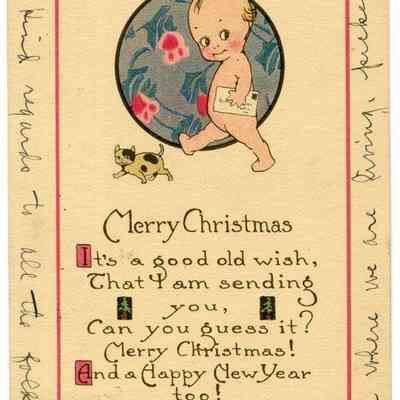 Merry Christmas
It's a good old wish,
That I am sending
you,
Can you guess it?
Merry Christmas!
And a Happy New Year
too!
Kind regards to all the folks
where we are living,